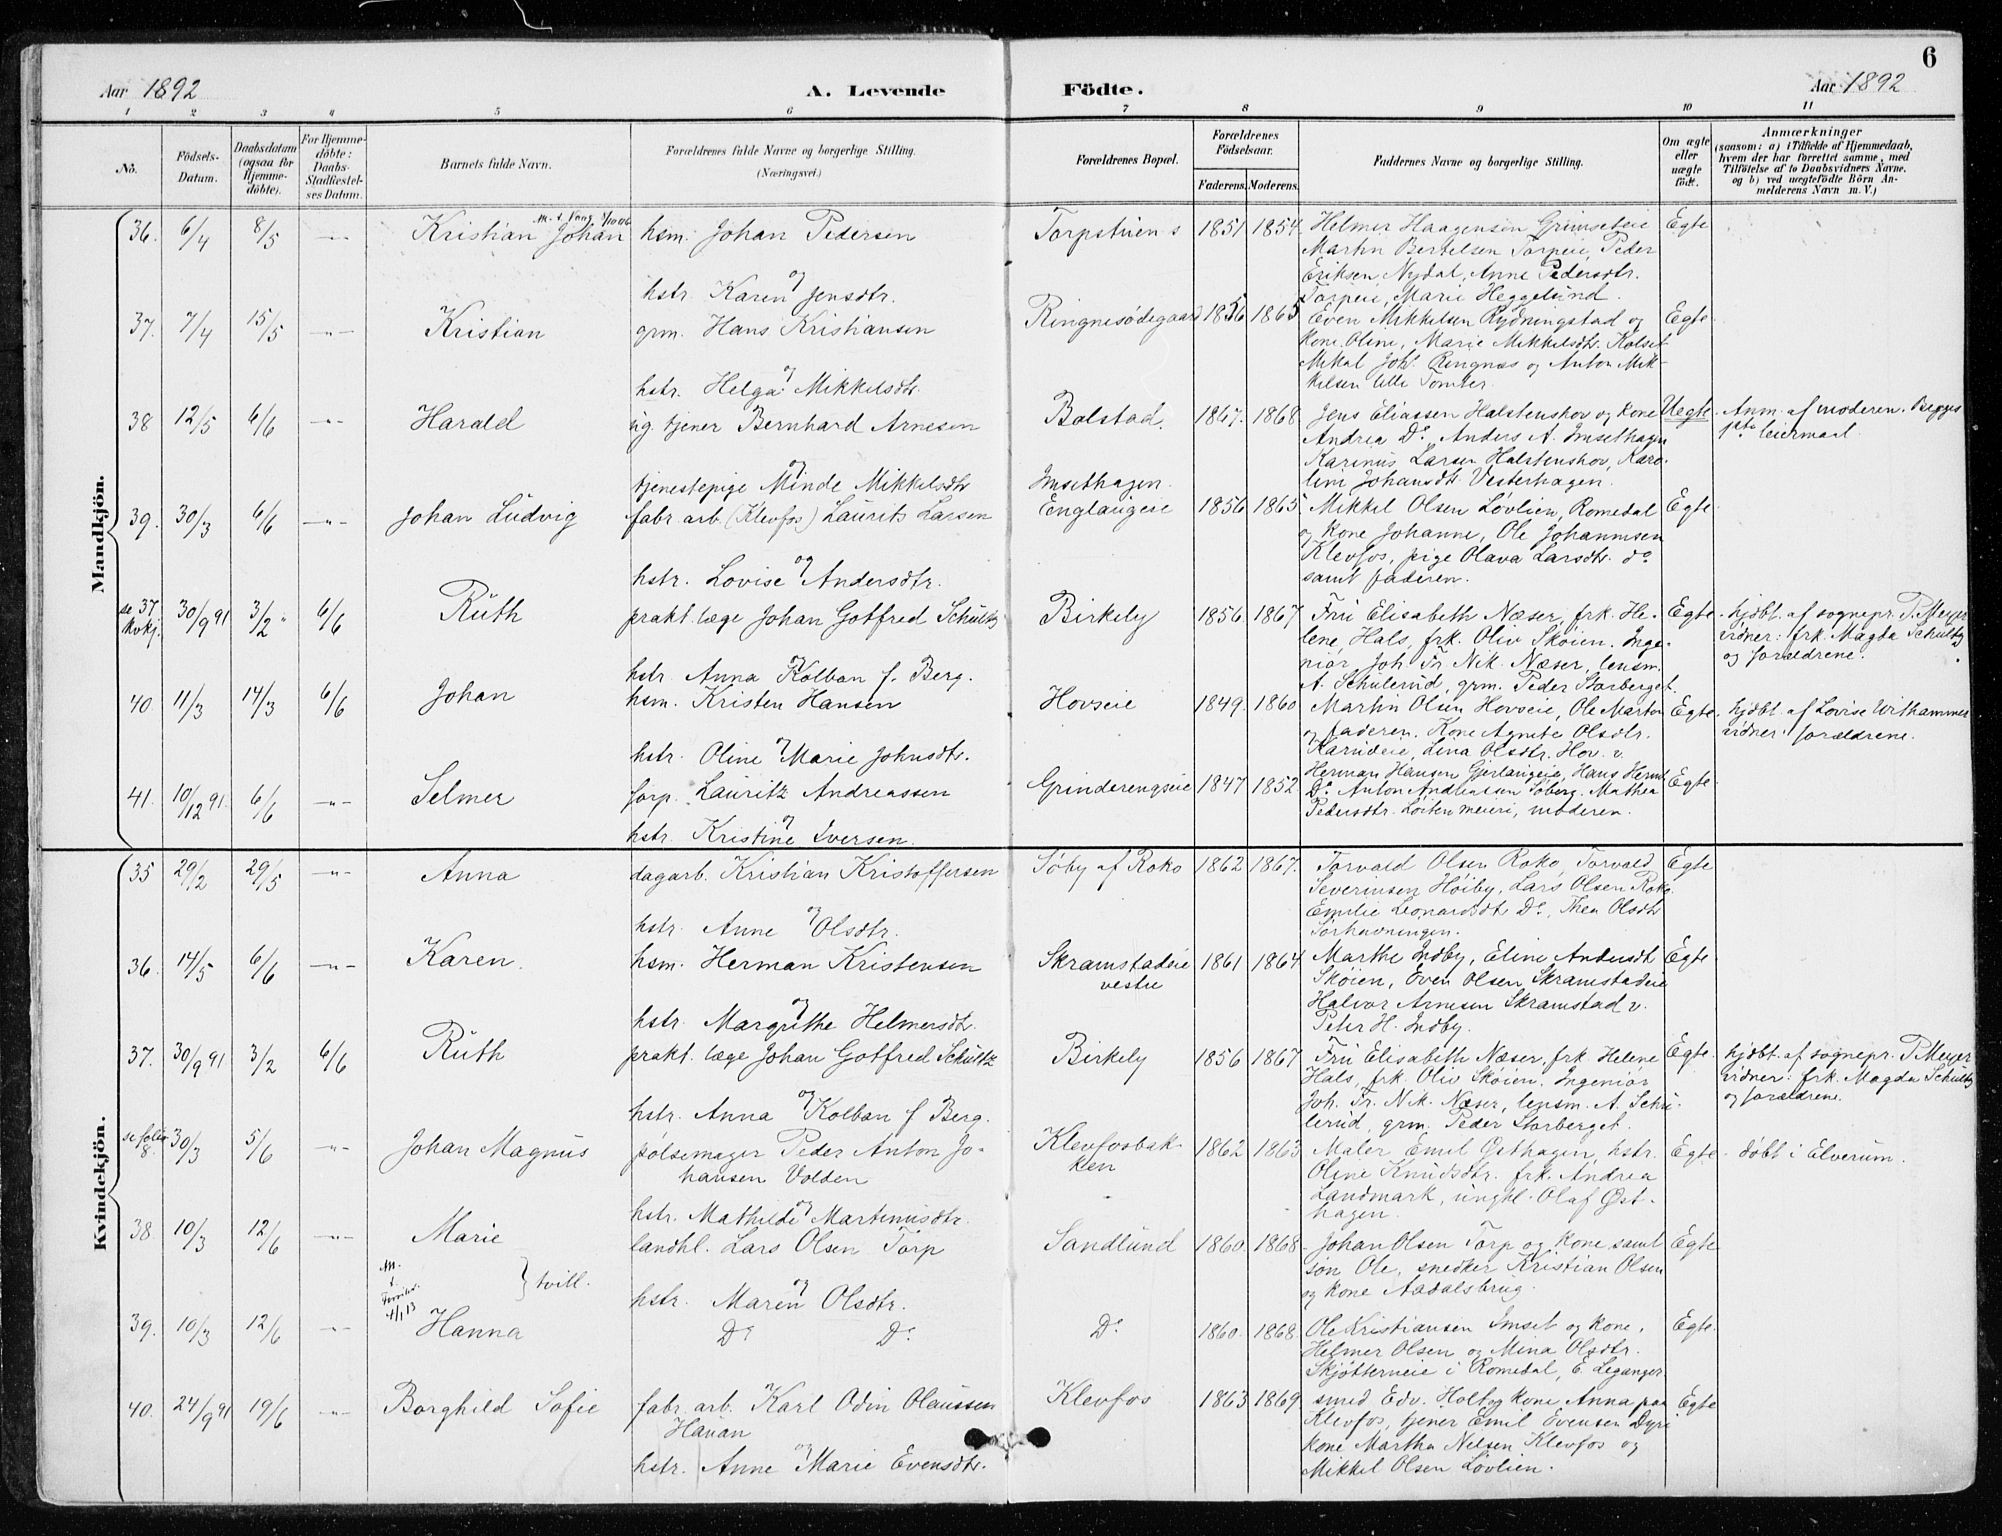 6
Aar 1892 A. Levende Födte. Aar 1892
1 2 3 4 5 6 7 8 9 10 11
No. Födsels-Datum. Daabsdatum (ogsaa för Hjemme-döbte). For Hjemme-döbte: Daabs-Stadfæstel-ses Datum. Barnets fulde Navn. Forældrenes fulde Navne og borgerlige Stilling. (Næringsvei.) Forældrenes Bopæl. Forældrenes Födselsaar. Faderens. Moderens. Faddernes Navne og borgerlige Stilling. Om ægte eller uægte födt. Anmærkninger (saasom: a) i Tilfælde af Hjemmedaab, hvem der har forrettet samme, med Tilföielse af to Daabsvidners Navne. og b) ved uægtefödte Börn An-melderens Navn m. V.)
Mandkjön.
36. 6/4 8/5 -"- Kristian Johan hsm. Johan Pedersen Torpstuen s 1851 1854 Helmer Haagensen Grimseteie Egte
Martin Bertelsen Torpeie, Peder
Eriksen Nydal, Anne Pedersdtr.
og hstr. Karen Jensdtr. Torpeie, Marie Heggelund.
37. 7/4 15/5 -"- Kristian grm. Hans Kristiansen Ringnesødegaard 1856 1865 Even Mikkelsen Rydningstad og Egte
kone Oline, Marie Mikkelsdtr. Kolset
Mikal Joh. Ringnæs og Anton Mik-
og hstr. Helga Mikkelsdtr. kelsen lille Tomter.
38 12/5 6/6 -"- Harald ug. tjener Bernhard Arnesen Bolstad. 1867. 1868 Jens Eliassen Halstenshov og kone Uegte. Anm. af moderen. Begges
Andrea Do, Anders A. Imsethagen 1ste leiermaal.
Karinus Larsen Halstenshov, Karo-
og tjenestepige Minde Mikkelsdtr Imsethagen. line Johansdtr Vesterhagen.
39. 30/3 6/6 -"- Johan Ludvig fabr. arb. (Klevfos) Laurits Larsen Englaugeie 1856 1865 Mikkel Olsen Løvlien, Romedal Egte
og kone Johanne, Ole Johannesen
Klevfos, pige Olava Larsdtr. do
og hstr. Lovise Andersdtr. samt faderen.
se 37 Kvkj. 30/9 91 3/2 6/6 Ruth prakt. læge Johan Gotfred Schultz Birkely 1856. 1867 Fru Elisabeth Næser, frk. He- Egte hjdbt. af sognepr. P. Meyer
lene Hals, frk. Oliv Skøien. Inge- vidner: frk. Magda Schultz
niør Joh. Fr. Nik. Næser, lensm. og forældrene.
og hstr. Anna Kolban f. Berg. A. Schulerud, grm. Peder Storberget.
40. 11/3 14/3 6/6 Johan hsm. Kristen Hansen Hovseie 1849. 1860 Martin Olsen Hovseie, Ole Marton Egte hjdbt. af Lovise Withammer
og faderen. Kone Agnete Olsdtr. vidner: forældrene.
og hstr. Oline Marie Johnsdtr. Lina Olsdtr. Hov. v.
41. 10/12 91. 6/6 -"- Selmer forp. Lauritz Andreassen Grinderengseie 1847 1852. Herman Hansen Gjerlaugeie, Hans Herm. Egte
Do Anton Andreassen Soberg. Mathea
Pedersdtr. Løiten meieri, moderen.
og hstr. Kristine Iversen.
Kvindekjön.
35 29/2 29/5 -"- Anna dagarb. Kristian Kristoffersen Søby af Roko 1862 1867. Torvald Olsen Roko, Torvald Egte
Severinsen Høiby, Lars Olsen Roko
Emilie Leonardsdtr Do, Thea Olsdtr
og hstr. Anne Olsdtr. Sørhavningen.
36. 14/5 6/6 -"- Karen. hsm. Herman Kristensen Skramstadeie vestre 1861 1864 Marthe Indby, Eline Andersdt Egte
Skøien, Even Olsen Skramstadeie
Halvor Arnesen Skramstad v.
og hstr. Margrethe Helmersdtr. Peter H. Indby.
37. 30/9 91 3/2 6/6 Ruth prakt. læge Johan Gotfred Schultz Birkely 1856 1867 Fru Elisabeth Næser, frk. Helene Egte hjdbt. af sognepr. P. Meyer
Hals, frk. Oliv Skøien. Ingeniør vidner: frk. Magda Schultz
Joh. Fr. Nik. Næser, lensm. A. Schu- og forældrene.
og hstr. Anna Kolban f Berg. lerud, grm. Peder Storberget.
se folio 8. 30/3 5/6 -"- Johan Magnus pølsemager Peder Anton Jo- Klevfosbak- 1862 1863 Maler Emil Østhagen, hstr. Egte døbt i Elverum.
hansen Volden ken Oline Knudsdtr. frk. Andrea
Landmark, ungkl. Olaf Øst-
og hstr. Mathilde Martinusdtr. hagen.
38. 10/3 12/6 -"- Marie landhl. Lars Olsen Torp Sandlund 1860. 1868. Johan Olsen Torp og kone samt Egte
} tvill. søn Ole, snedker Kristian Olsen
og hstr. Maren Olsdtr. og kone Aadalsbrug.
39. 10/3 12/6 -"- Hanna Do Do Do 1860. 1868. Ole Kristiansen Imset og kone. Egte.
Helmer Olsen og Mina Olsdtr.
Skjøtterneie i Romedal, E. Leganger.
40. 24/9 91 19/6 -"- Borghild Sofie fabr. arb. Karl Odin Olaussen Klevfos 1863 1869 smed Edv. Holt og kone Anna paa Egte
Hauan Klevfos, tjener Emil Evensen Dyri
kone Martha Nilsen Klevfos og
og hstr. Anne Marie Evensdtr. Mikkel Olsen Løvlien.